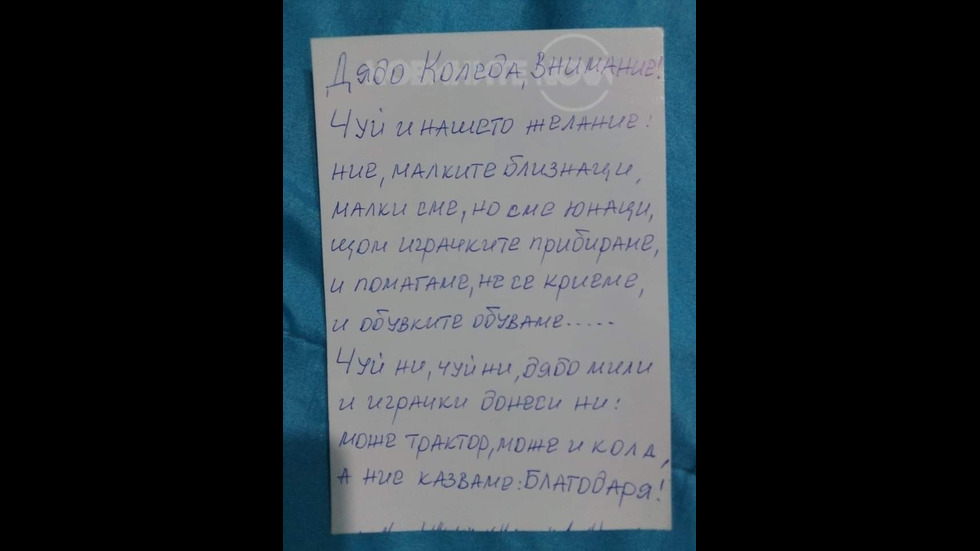 Дядо Коледа, внимание!
Чуй и нашето желание:
ние, малките близнаци,
малки сме, но сме юнаци,
щом играчките прибираме,
и помагаме, не се криеме,
и обувките обуваме.....
Чуй ни, чуй ни, дядо мили
и играчки донеси ни:
може трактор, може и кола,
а ние казваме: Благодаря!